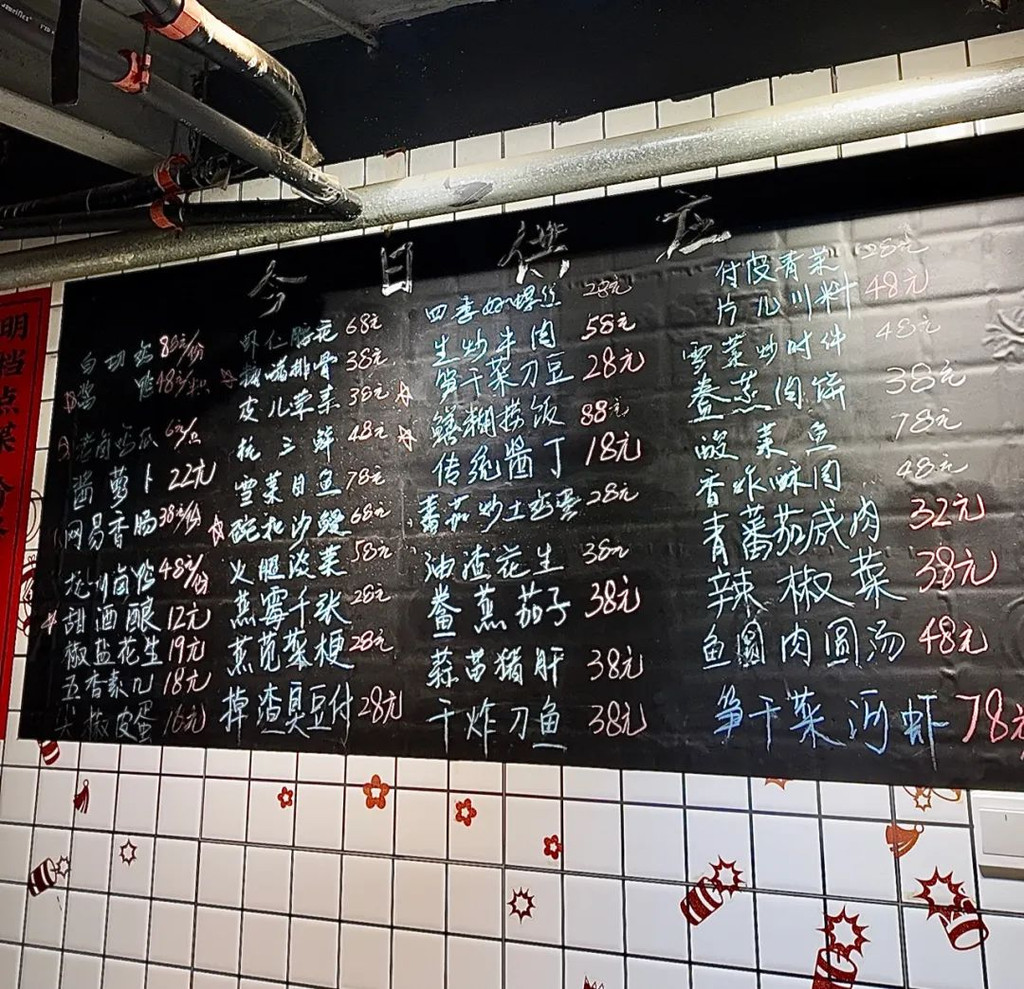 今日供应
明档点菜
白切鸡
鸭
酱萝卜 22元
网易香肠 38元/份
甜酒酿 12元
椒盐花生 19元
五香素儿 18元
皮蛋 16元
虾仁 68元
排骨 38元
皮儿荤素 38元
三鲜 48元
雪菜目鱼 78元
沙鳗 68元
火腿菠菜 58元
蒸霉千张 28元
蒸苋菜梗 28元
掉渣臭豆付 28元
四季 螺丝 28元
生炒牛肉 58元
笋干菜刀豆 28元
鳝糊捞饭 88元
传统酱丁 18元
番茄炒土鸡蛋 28元
油渣花生 38元
鲞蒸茄子 38元
蒜苗猪肝 38元
干炸刀鱼 38元
付皮青菜 28元
片儿川料 48元
雪菜炒时件 48元
鲞蒸肉饼 38元
酸菜鱼 78元
香炸酥肉 48元
青番茄咸肉 32元
辣椒菜 38元
鱼圆肉圆汤 48元
笋干菜河虾 78元